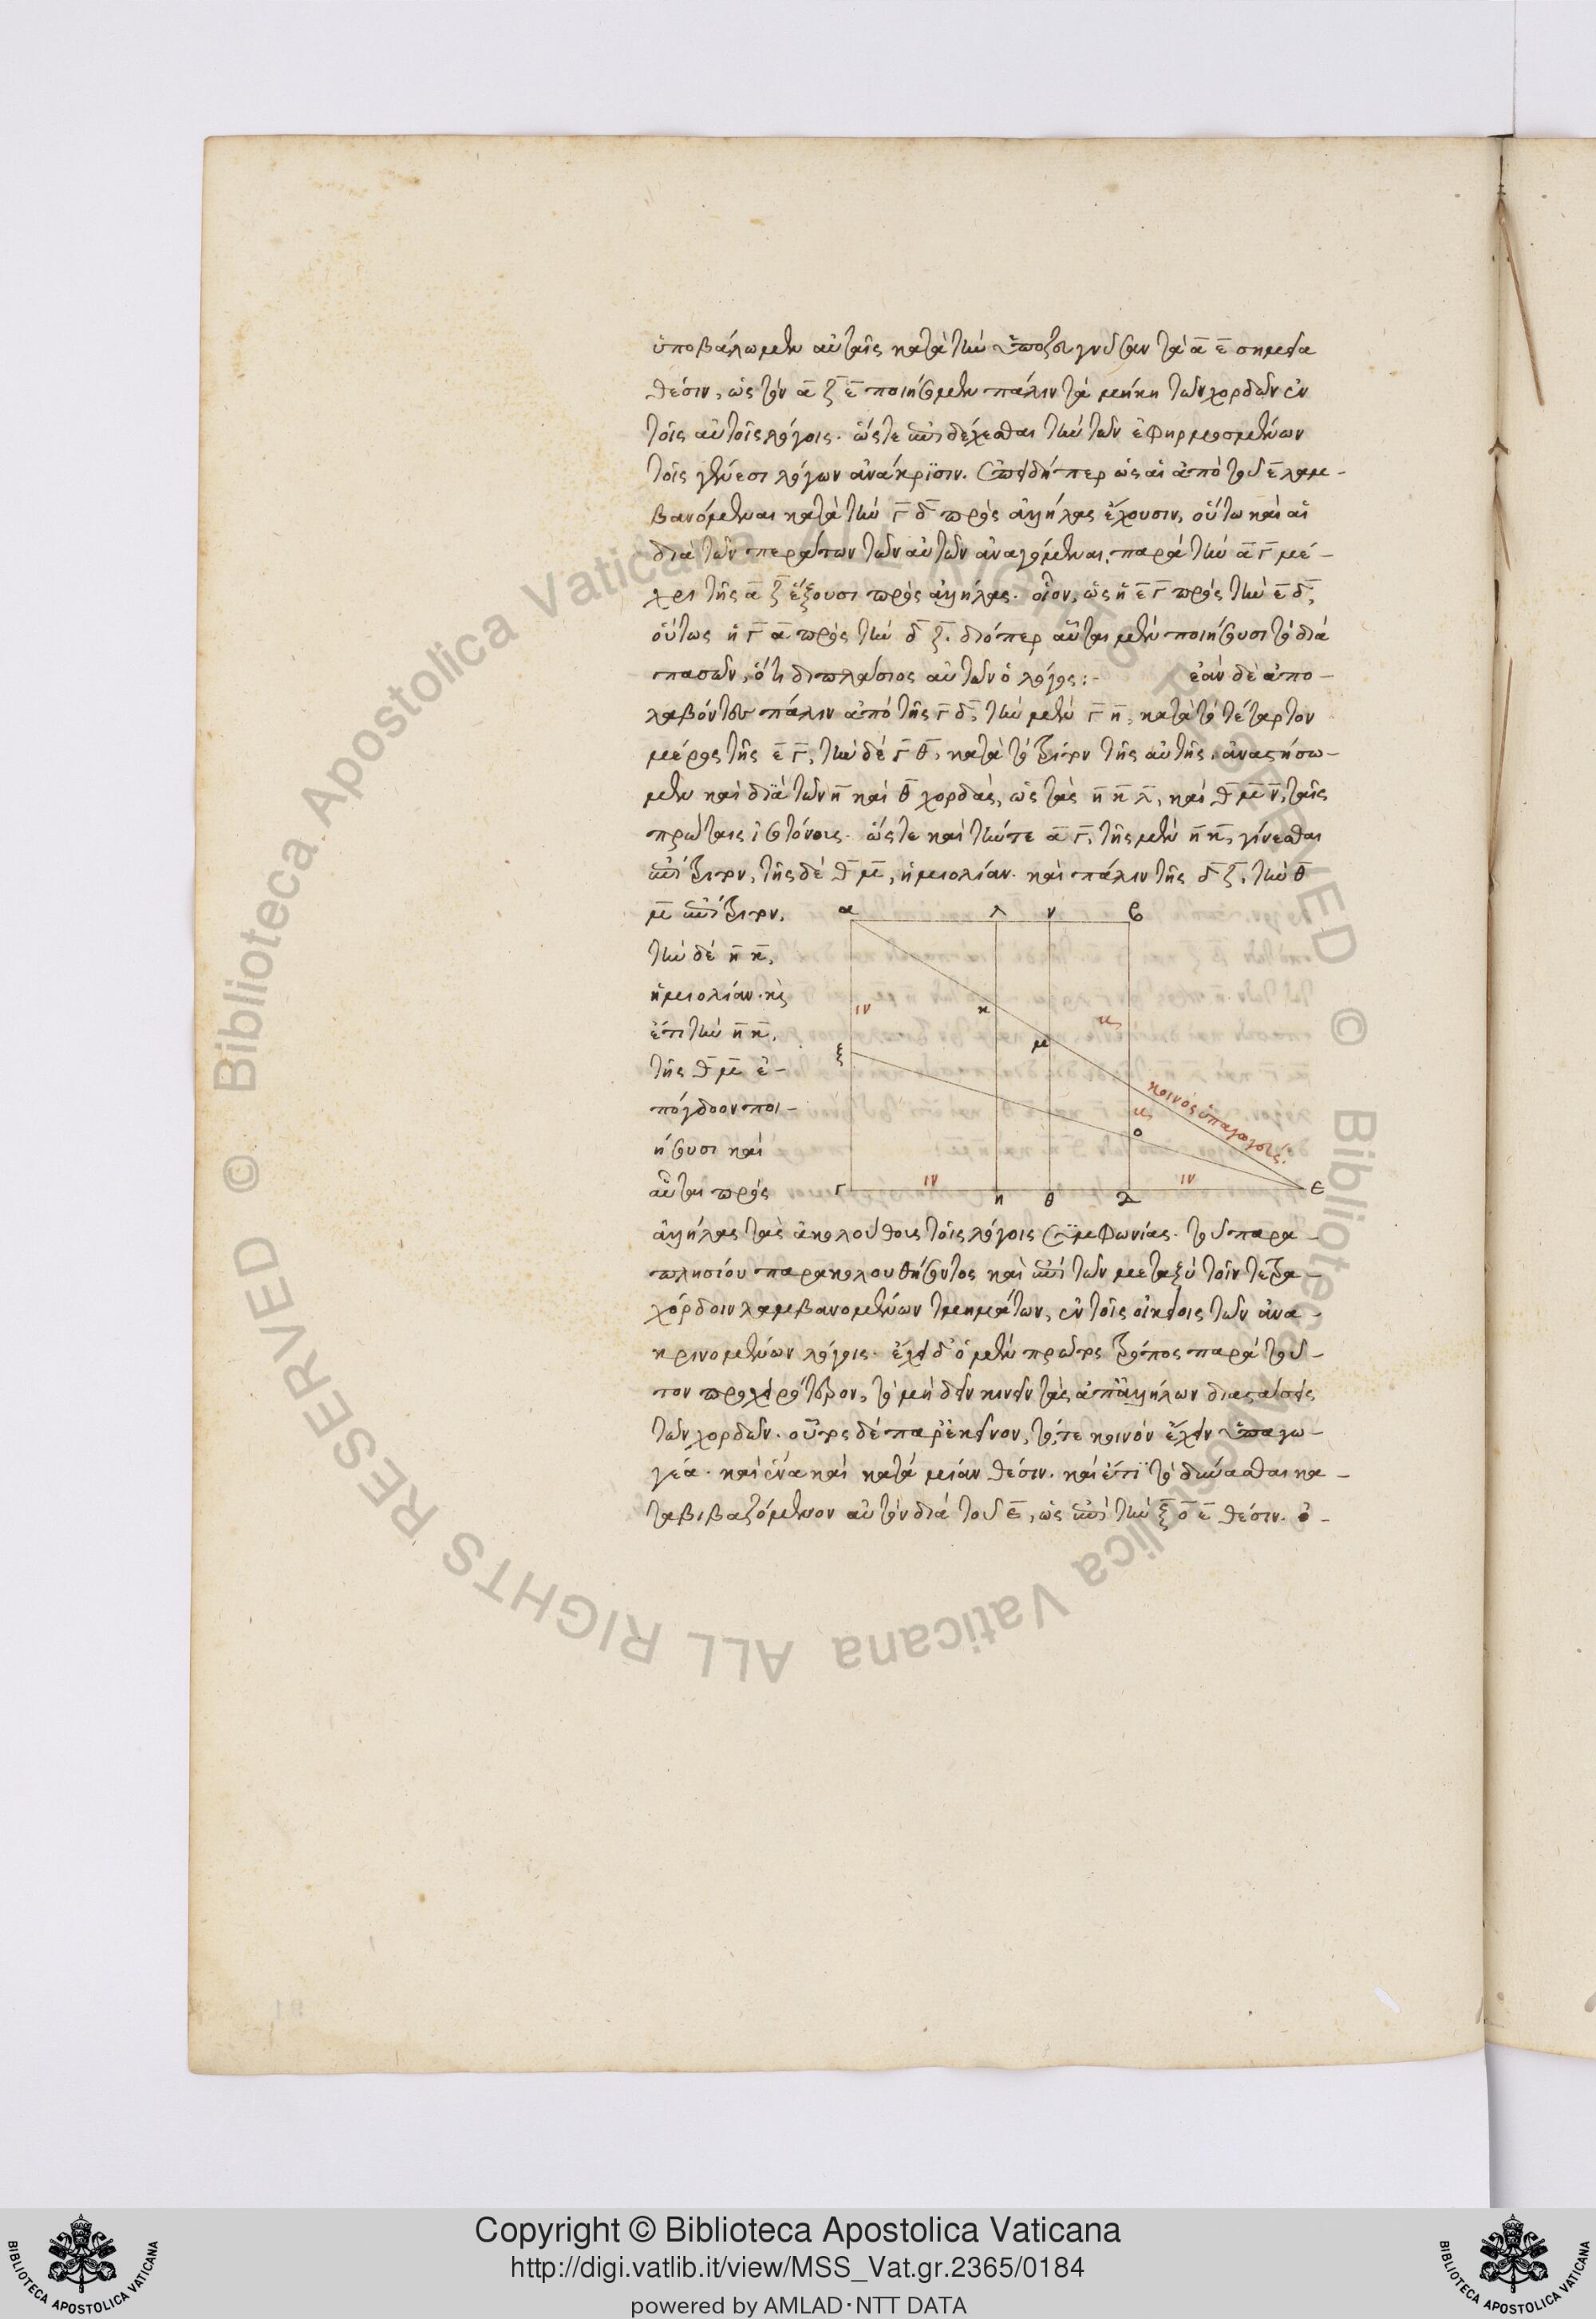 ὑποβάλωμεν αὐταῖς κατὰ τὴν ἐπιζευγνῦσαν τὰ α̅ ε̅ σημεῖα
θέσιν, ὡς τὴν α̅ ζ̅ ε̅ ποιήσομεν πάλιν τὰ μήκη τῶν χορδῶν ἐν
τοῖς αὐτοῖς λόγοις. ὥςτε ἐπιδέχεσθαι τὴν τῶν ἐφηρμοσμένων
τοῖς γένεσι λόγων ἀνάκρϊσιν. ἐπειδήπερ ὡς αἱ ἀπὸ τοῦ ε̅ λαμ-
βανόμεναι κατὰ τὴν γ̅ δ̅ πρὸς ἀλλήλας ἔχουσιν, οὕτω καὶ αἱ
διὰ τῶν περάτων τῶν αὐτῶν ἀναγόμεναι, παρὰ τὴν α̅ γ̅ μέ-
χρι τῆς α̅ ζ̅ ἕξουσι πρὸς ἀλλήλας. οἷον, ὡς ἡ ε̅ γ̅ πρὸς τὴν ε̅ δ̅,
οὕτως ἡ γ̅ α̅ πρὸς τὴν δ̅ ζ̅. διόπερ αὗται μὲν ποιήσουσι τὸ διὰ
πασῶν, ὅτι διπλάσιος αὐτῶν ὁ λόγος:- ἐὰν δὲ ἀπο-
λαβόντες πάλιν ἀπὸ τῆς γ̅ δ̅, τὴν μὲν γ̅ η̅, κατὰ τὸ τέταρτον
μέρος τῆς ε̅ γ̅, τὴν δὲ γ̅ θ̅, κατὰ τὸ τρίτον τῆς αὐτῆς, ἀναστήσω-
μεν καὶ διὰ τῶν η̅ καὶ θ̅ χορδὰς, ὡς τὰς η̅ κ̅ λ̅, καὶ θ̅ μ̅ ν̅, ταῖς
πρώταις ἰσοτόνους. ὥςτε καὶ τήν τε α̅ γ̅, τῆς μὲν η̅ κ̅, γίνεσθαι
ἐπίτριτον, τῆς δὲ θ̅ μ̅, ἡμιολίαν. καὶ πάλιν τῆς δ̅ ζ̅, τὴν θ̅
μ̅ ἐπίτριτον,
τὴν δὲ η̅ κ̅,
ἡμιολίαν. κὶ
ἔτι τὴν η̅ κ̅,
τῆς θ̅ μ̅ ἐ-
πόγδοον ποι-
ήσουσι καὶ
αὗται πρὸς
α λ ν β
ιν κ κϛ
ξ μ
κοινὸς ὑπαγωγεύς.
κϛ
ο
γ ιν η θ δ ιν ε
ἀλλήλας τὰς ἀκολούθους τοῖς λόγοις συμφωνίας. τοῦ παρα-
πλησίου παρακολουθήσοντος καὶ ἐπὶ τῶν μεταξὺ τοῖν τετρα-
χόρδοιν λαμβανομένων τμημάτων, ἐν τοῖς οἰκείοις τῶν ἀνα-
κρινομένων λόγοις. ἔχει δ' ὁ μὲν πρῶτος τρόπος παρὰ τοῦ-
τον προχειρότερον, τὸ μὴ δεῖν κινεῖν τὰς ἀπ' ἀλλήλων διαστάσεις
τῶν χορδῶν. οὗτος δὲ παρ' ἐκεῖνον, τό, τε κοινὸν ἔχειν ὑπαγω-
γέα. καὶ ἕνα καὶ κατὰ μίαν θέσιν. καὶ ἔτι τὸ δύνασθαι κα-
ταβιβαζόμενον αὐτὸν διὰ τοῦ ε̅, ὡς ἐπὶ τὴν ξ̅ ο̅ ε̅ θέσιν. ὁ-
© Biblioteca Apostolica Vaticana ALL RIGHTS RESERVED
© Biblioteca Apostolica Vaticana ALL RIGHTS RESERVED
Copyright © Biblioteca Apostolica Vaticana
http://digi.vatlib.it/view/MSS_Vat.gr.2365/0184
powered by AMLAD·NTT DATA
BIBLIOTECA APOSTOLICA VATICANA
BIBLIOTECA APOSTOLICA VATICANA